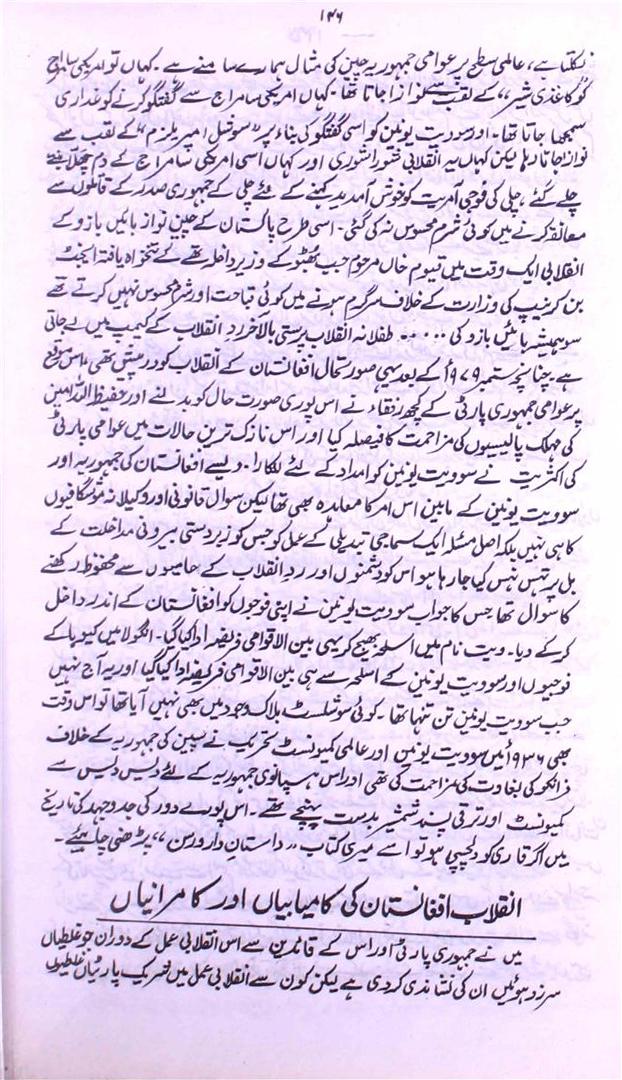 ۱۴۶
نکلتا ہے، عالمی سطح پر عوامی جمہوریہ چین کی مثال ہمارے سامنے ہے۔ کہاں تو امریکی سامراج
کو کاغذی شیر،، کے لقب سے نوازا جاتا تھا۔ کہاں امریکی سامراج سے گفتگو کرنے کو غداری
سمجھا جاتا تھا۔ اور سوویت یونین کو اسی گفتگو کی بناء پر ،،سوشل امپریلزم،، کے لقب سے
نوازا جاتا رہا لیکن کہاں یہ انقلابی شورا شوری اور کہاں اسی امریکی سامراج کے دم چھلّا بنتے
چلے گئے، چلی کی فوجی آمریت کو خوش آمدید کہنے کے لئے چلی کے جمہوری صدر کے قاتلوں سے
معانقہ کرنے میں کوئی شرم محسوس نہ کی گئی۔ اسی طرح پاکستان کے چین نواز بائیں بازو کے
انقلابی ایک وقت میں قیوم خاں مرحوم جب بھٹو کے وزیر داخلہ تھے کے تنخواہ یافتہ ایجنٹ
بن کر نیپ کی وزارت کے خلاف سرگرم ہونے میں کوئی قباحت اور شرم محسوس نہیں کرتے تھے
سو ہمیشہ بائیں بازو کی ..... طفلانہ انقلاب پرستی بالآخر رد انقلاب کے کیمپ میں لے جاتی
ہے۔ چنانچہ ستمبر ۱۹۷۹ء کے بعد یہی صورتحال افغانستان کے انقلاب کو درپیش تھی، اس موقع
پر عوامی جمہوری پارٹی کے کچھ رفقاء نے اس پوری صورت حال کو بدلنے اور حفیظ اللہ امین
کی مہلک پالیسیوں کی مزاحمت کا فیصلہ کیا اور اس نازک ترین حالات میں عوامی پارٹی
کی اکثریت نے سوویت یونین کو امداد کے لئے للکارا۔ ویسے افغانستان کی جمہوریہ اور
سوویت یونین کے مابین اس امر کا معاہدہ بھی تھا لیکن سوال قانونی اور وکیلانہ موشگافیوں
کا ہی نہیں بلکہ اصل مسئلہ ایک سماجی تبدیلی کے عمل کو جس کو زبردستی بیرونی مداخلت کے
بل پر تہس نہس کیا جا رہا ہو اس کو دشمنوں اور رد انقلاب کے حامیوں سے محفوظ رکھنے
کا سوال تھا جس کا جواب سوویت یونین نے اپنی فوجوں کو افغانستان کے اندر داخل
کر کے دیا۔ ویت نام میں اسلحہ بھیج کر یہی بین الاقوامی فریضہ ادا کیا گیا۔ انگولا میں کیوبا کے
فوجیوں اور سوویت یونین کے اسلحہ سے ہی بین الاقوامی فریضہ ادا کیا گیا اور یہ آج نہیں
جب سوویت یونین تن تنہا تھا۔ کوئی سوشلسٹ بلاک وجود میں بھی نہیں آیا تھا تو اس وقت
بھی ۱۹۳۶ء میں سوویت یونین اور عالمی کمیونسٹ تحریک نے سپین کی جمہوریہ کے خلاف
فرانکو کی بغاوت کی مزاحمت کی تھی اور اس ہسپانوی جمہوریہ کے لئے دیس دیس سے
کمیونسٹ اور ترقی پسند شمشیر بدست پہنچے تھے۔ اس پورے دور کی جدوجہد کی تاریخ
میں اگر قاری کو دلچسپی ہو تو اسے میری کتاب ،،داستانِ دار و رسن،، پڑھنی چاہیئے۔
انقلاب افغانستان کی کامیابیاں اور کامرانیاں
میں نے جمہوری پارٹی اور اس کے قائدین سے اس انقلابی عمل کے دوران جو غلطیاں
سرزد ہوئیں ان کی نشاندہی کر دی ہے لیکن کون سے انقلابی عمل میں شریک پارٹیاں غلطیوں